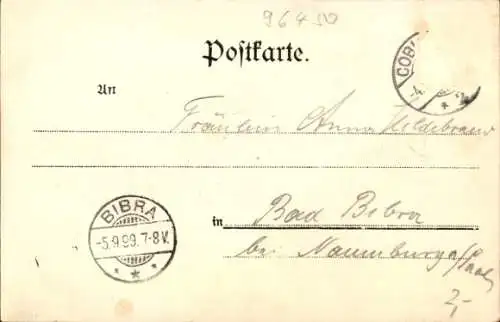 96450
Postkarte.
COB
-4.
An
Fräulein Anna Hildebrand
BIBRA
-5.9.99.7-8V.
in Bad Bibra
bei Naumburg a/Saale
2,-